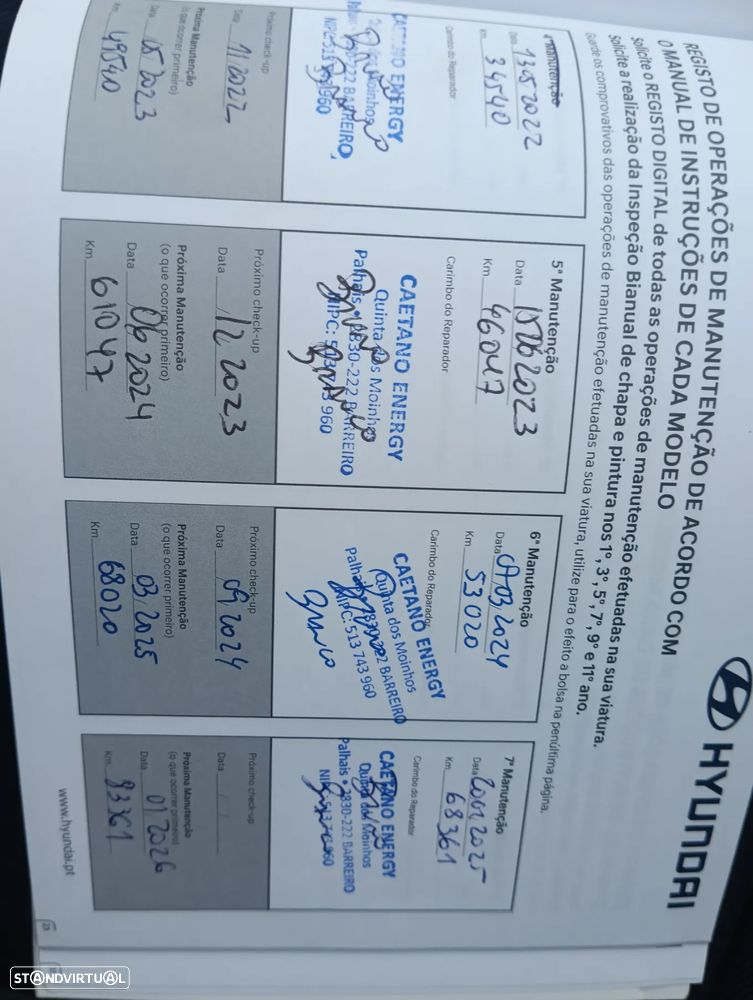 HYUNDAI
REGISTO DE OPERAÇÕES DE MANUTENÇÃO DE ACORDO COM
O MANUAL DE INSTRUÇÕES DE CADA MODELO
Solicite o REGISTO DIGITAL de todas as operações de manutenção efetuadas na sua viatura.
Solicite a realização da Inspeção Bianual de chapa e pintura nos 1º, 3º, 5º, 7º, 9º e 11º ano.
Guarde os comprovativos das operações de manutenção efetuadas na sua viatura, utilize para o efeito a bolsa na penúltima página.
4ª Manutenção
Data 13 05 2022
Km 34540
Carimbo do Reparador
CAETANO ENERGY
Próximo check-up
Data 11 2022
Próxima Manutenção
(o que ocorrer primeiro)
Data 05 2023
Km 49540
5ª Manutenção
Data 15 06 2023
Km 46047
Carimbo do Reparador
CAETANO ENERGY
Quinta dos Moinhos
Palhais • 2830-222 BARREIRO
Próximo check-up
Data 12 2023
Próxima Manutenção
(o que ocorrer primeiro)
Data 06 2024
Km 61047
6ª Manutenção
Data 07/03/2024
Km 53020
Carimbo do Reparador
CAETANO ENERGY
Quinta dos Moinhos
Palhais 2830-222 BARREIRO
NIPC: 513 743 960
Próximo check-up
Data 09 2024
Próxima Manutenção
(o que ocorrer primeiro)
Data 03/2025
Km 68020
7ª Manutenção
Data 20/01/2025
Km 68361
Carimbo do Reparador
CAETANO ENERGY
Quinta dos Moinhos
Palhais • 2830-222 BARREIRO
Próximo check-up
Data / /
Próxima Manutenção
(o que ocorrer primeiro)
Data 01 2026
Km 83361
www.hyundai.pt
23
STANDVIRTUAL